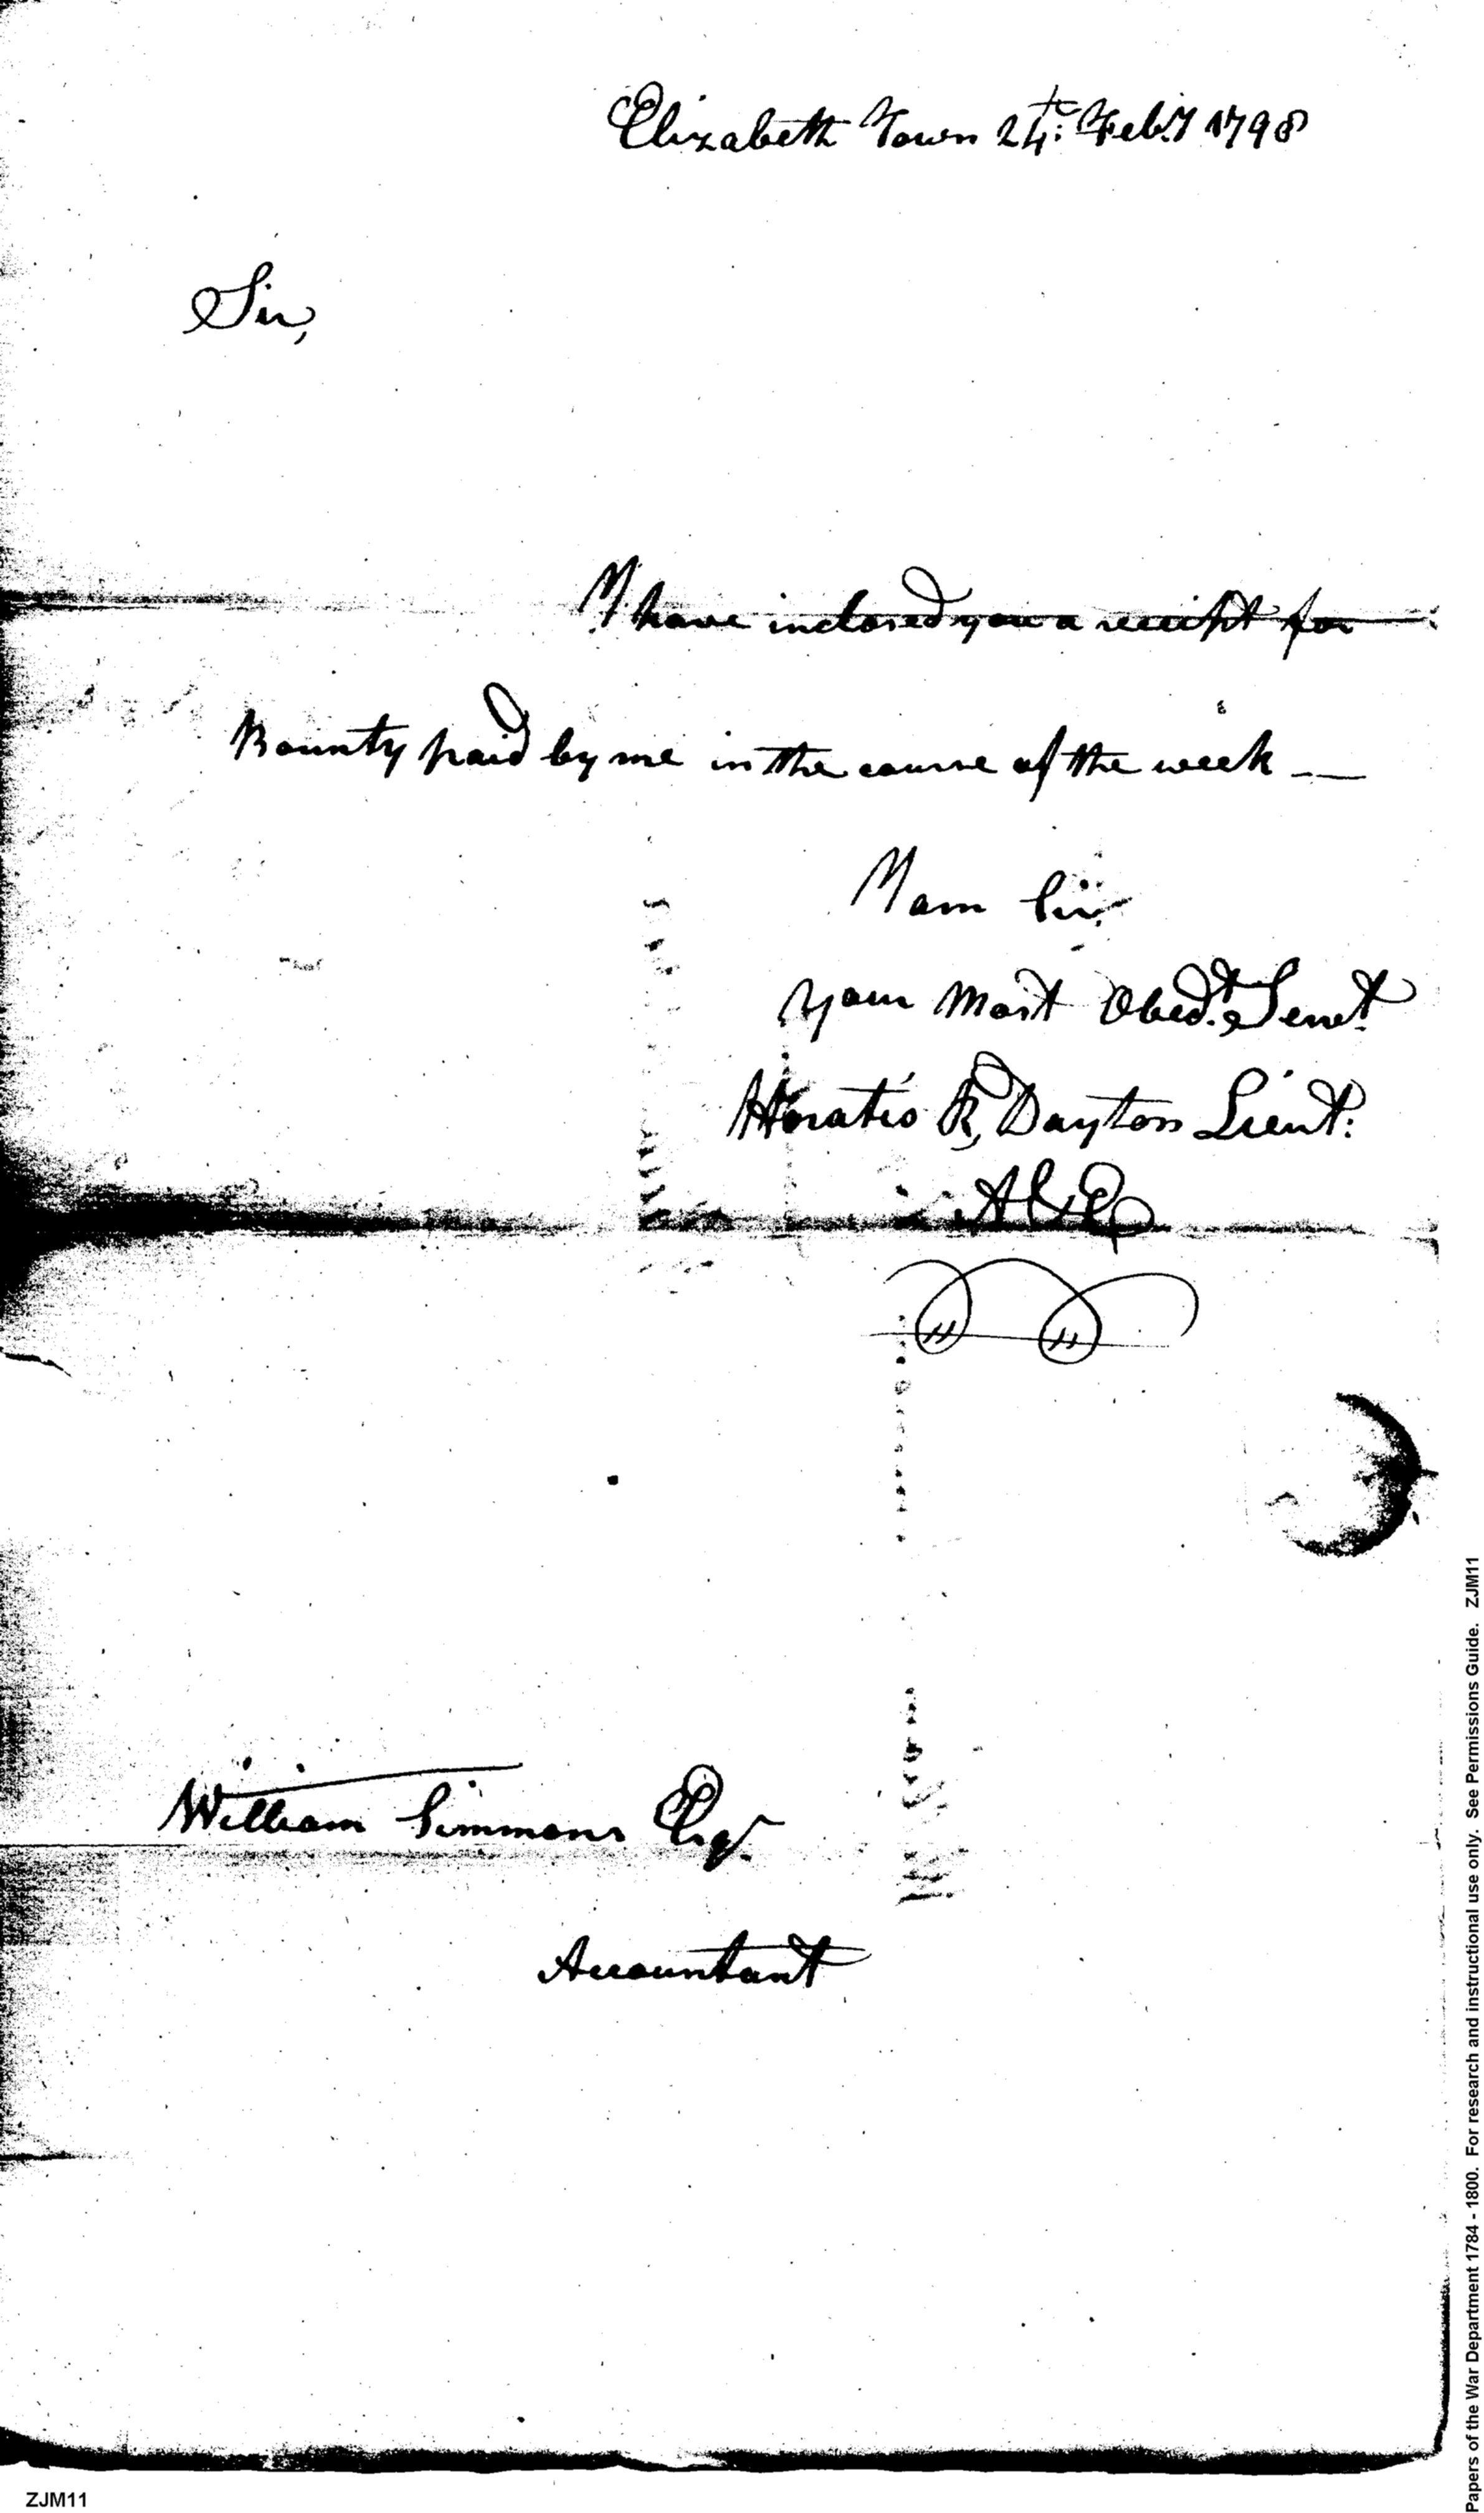 Elizabeth Town 24th: Feby 1798
Sir,
I have inclosed you a receipt for
Bounty paid by me in the course of the week —
I am Sir
your most Obedt. Servt.
Horatio R, Dayton Lieut:
A&E
William Simmons Esqr.
Accountant
ZJM11
Papers of the War Department 1784 - 1800. For research and instructional use only. See Permissions Guide. ZJM11